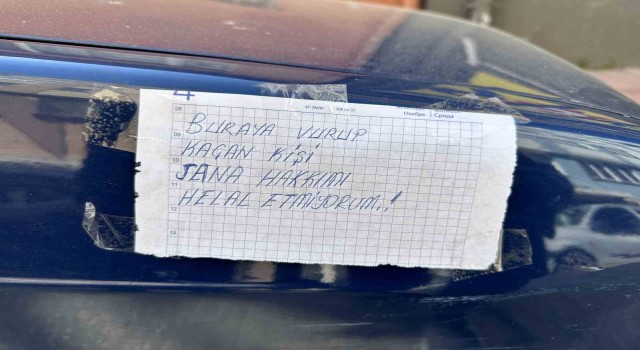 4
08
09
10
11
12
13
Ноябрь Среда
BURAYA VURUP
KAÇAN KİŞİ
SANA HAKKIMI
HELAL ETMİYORUM..!